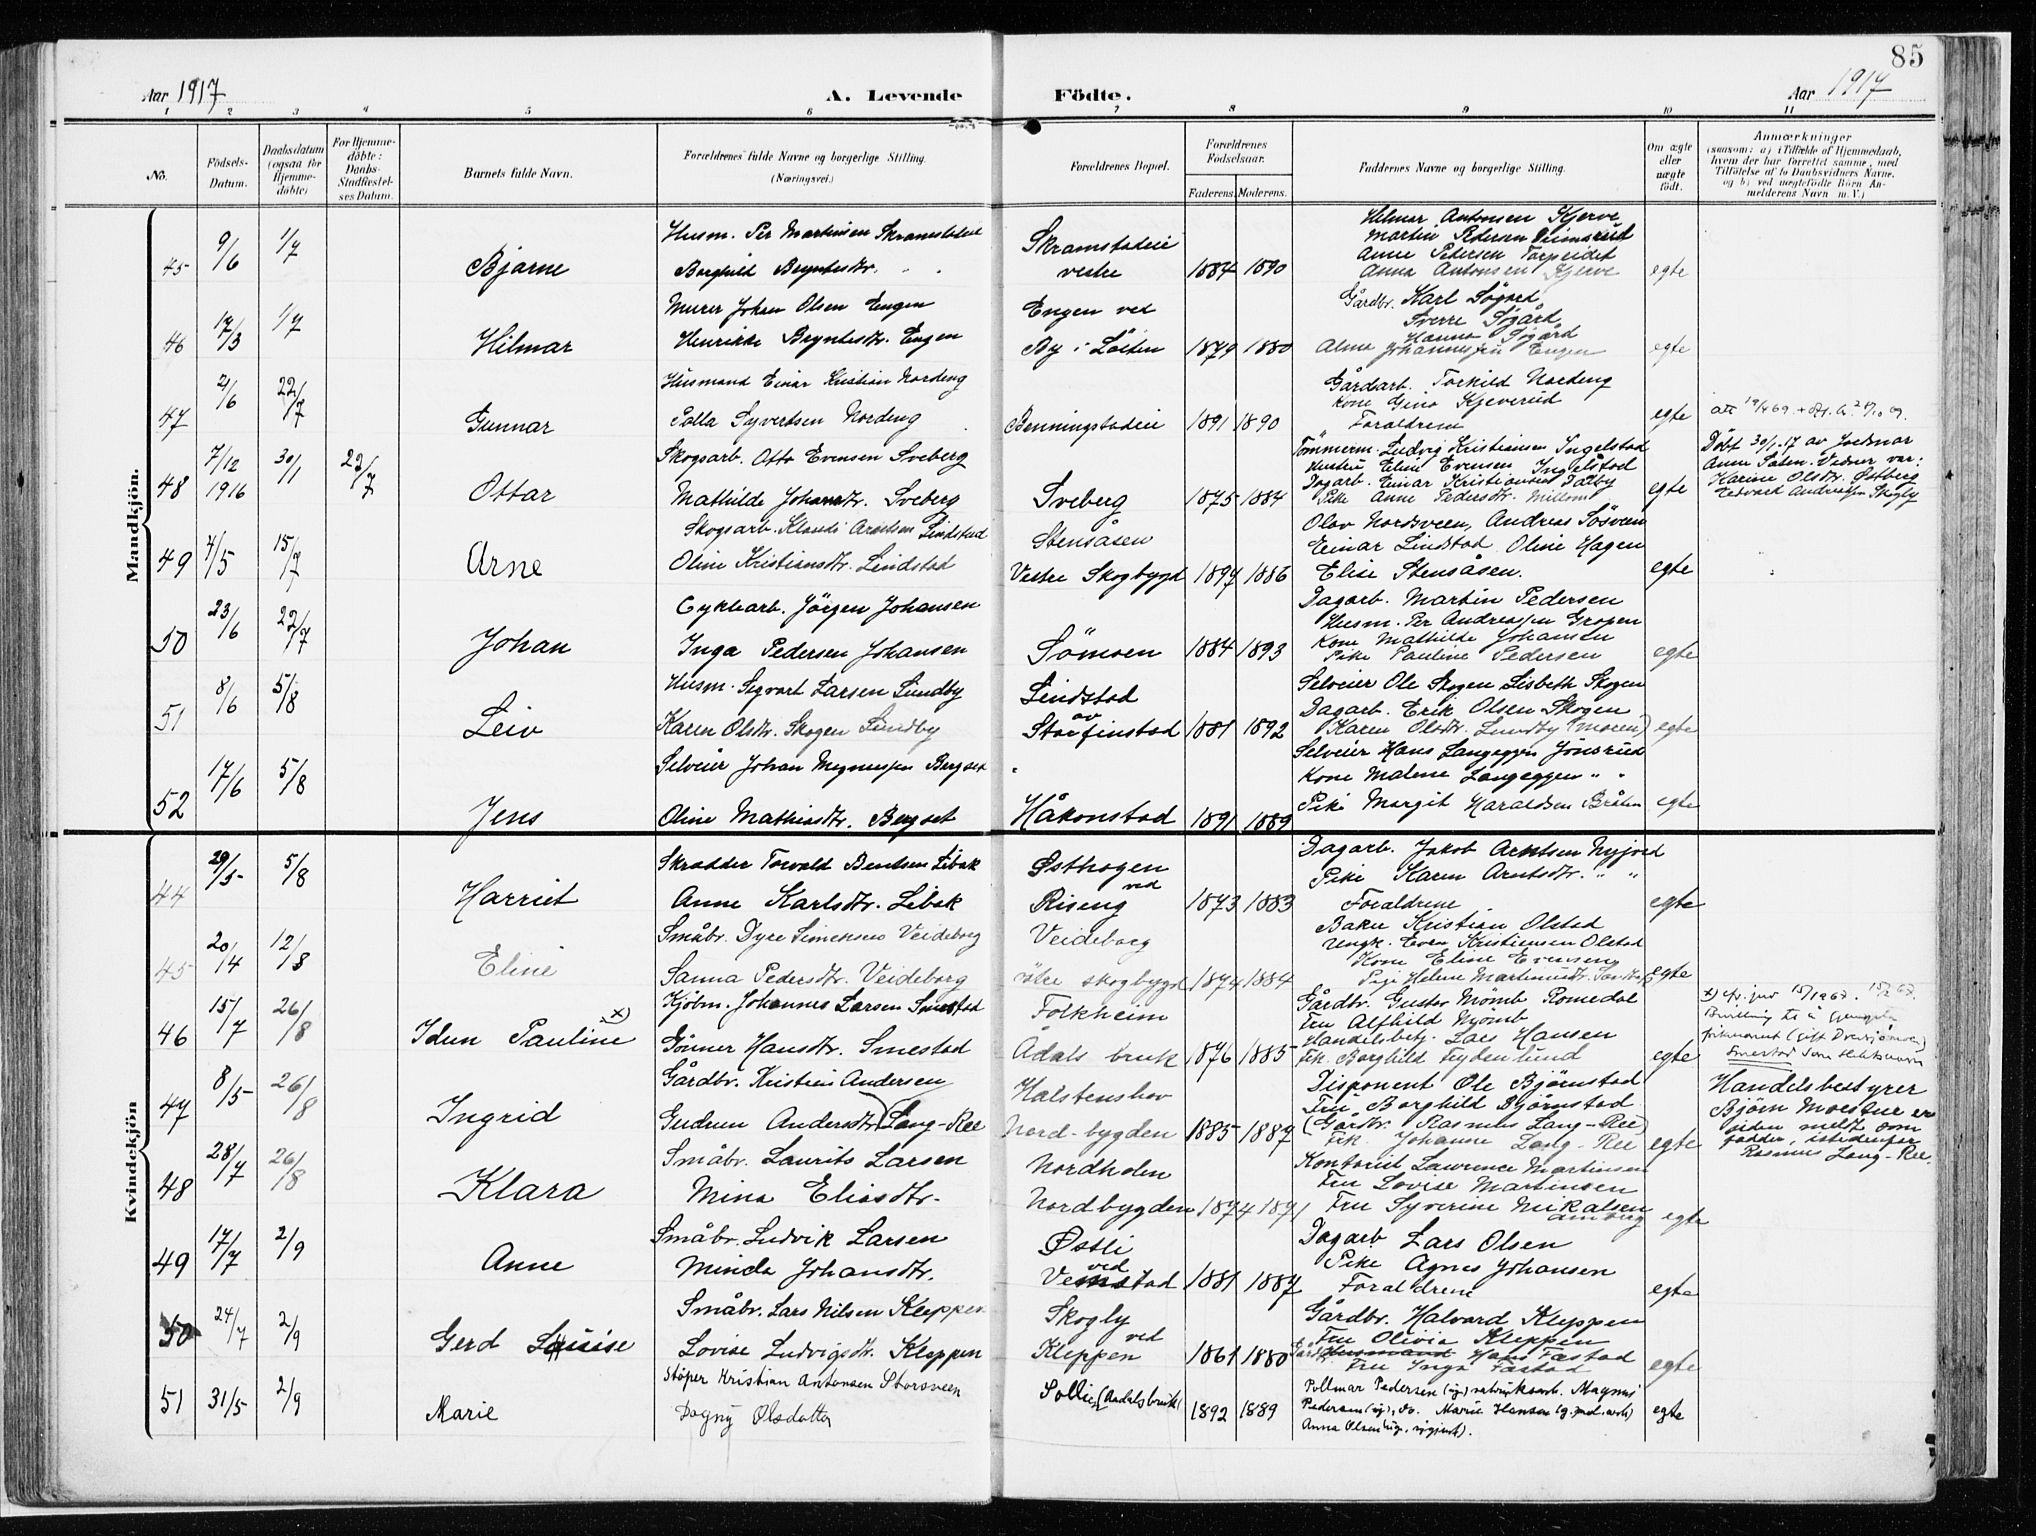 85
Aar 1917
A. Levende Födte.
Aar 1917
1 2 3 4 5 6 7 8 9 10 11
No.
Födsels-Datum.
Daabsdatum (ogsaa for Hjemme-döbte)
For Hjemme-döbte: Daabs-Stadfæstel-ses Datum.
Barnets fulde Navn.
Forældrenes fulde Navne og borgerlige Stilling.
(Næringsvei.)
Forældrenes Bopæl.
Forældrenes Födselsaar.
Faderens. Moderens.
Faddernes Navne og borgerlige Stilling.
Om ægte eller uægte födt.
Anmærkninger
(saasom: a) i Tilfælde af Hjemmedaab,
hvem der har forrettet samme, med
Tilföielse af to Daabsvidners Navne,
og b) ved uægtefödte Börn An-
melderens Navn m. V.)
Mandkjön.
45 9/6 1/7 Bjarne
Husm. Per Martinsen Skramstadeie
Borghild Bryntesdtr. " "
Skramstadeie
vestre 1884 1890
Hilmar Antonsen Kjerve
Martin Pedersen
Anne Petersen
Anna Antonsen Kjerve egte
46 17/3 1/7 Hilmar
Murer Johan Olsen Engen
Henrikke Bryntesdtr. Engen
Engen ved
By i Löiten 1879 1880
Gårdbr. Karl Sögård
Sverre Sögård
Hanna Sögård
Alma Johannessen Engen egte
47 2/6 22/7 Gunnar
Husmand Einar Kristian Nordeng
Palla Syvertsen Nordeng
Benningstadeie 1891 1890
Gårdarb. Torkild Nordeng
Kone Gina Kjeverud
Foraldrene egte
48 7/12 1916 30/1 22/7 Ottar
Skogsarb. Otto Evensen Sveberg
Mathilde Johansdtr. Sveberg
Sveberg 1875 1884
Tömmerm. Ludvig Kristiansen Ingelstad
Hustru Eline Evensen Ingelstad
Dagarb. Einar Kristiansen Dalby
Pike Anne Pedersdtr. egte
Döbt 30/1-17 av Jordmor
Anne Saten. Vidner var:
Karine Olsdtr. Østberg
Edvard Andreassen Skogly
49 4/5 15/7 Arne
Skogsarb. Klaudi Arntsen Lindstad
Oline Kristiansdtr. Lindstad
Stensåsen
Vestre Skogbygd 1894 1886
Olav Nordsveen, Andreas Sösveen
Einar Lindstad Oline Hagen
Elise Stensåsen. egte
50 23/6 22/7 Johan
Cyklearb. Jörgen Johansen
Inga Pedersen Johansen
Sömoen 1884 1893
Dagarb. Martin Pedersen
Husm. Per Andreassen Gropen
Kone Mathilde Johansen
Pike Pauline Pedersen egte
51 8/6 5/8 Leiv
Husm. Sigvart Larsen Lundby
Karen Olsdtr. Skogen Lundby
Lindstad
av
Storfinstad 1881 1892
Selveier Ole Skogen Lisbeth Skogen
Dagarb. Erik Olsen Skogen
Karen Olsdtr. Lundby (moren) egte
52 17/6 5/8 Jens
Selveier Johan Magnussen Bergset
Oline Mathiasdtr. Bergset
Håkonstad 1891 1889
Selveier Hans Langeggen Jönsrud
Kone Malene Langeggen " "
Pike Margit Haraldsen Bråten egte
Kvindekjön
44 29/5 5/8 Harriet
Skradder Torvald Bendsen Libak
Anne Karlsdtr. Libak
Østhagen
ved
Riseng 1873 1883
Dagarb. Jakob Arntsen Nyjord
Pike Karen Arntsdtr. " "
Foraldrene egte
45 20/4 12/8 Eline
Småbr. Dyre Simensen Veideborg
Sanna Pedersdtr. Veideborg
Veideborg
östre skogbygd 1874 1884
Baker Kristian Olstad
Ungk. Even Kristiansen Olstad
Kone Eline Evensen
Pige Helene Martinusdtr. egte
46 15/7 26/8 Idun Pauline x)
Kjöbm. Johannes Larsen Smestad
Gönner Hansdtr. Smestad
Folkheim
Ådals bruk 1876 1885
Gårdbr. Gustav Mömb Romedal
Fru Alfhild Mömb
Handelsbetj. Lars Hansen
Frk. Borghild Lydenlund egte
47 8/5 26/8 Ingrid
Gårdbr. Kristian Andersen
Gudrun Andersdtr.) Lang-Ree
Halstenshov
Nord-bygden 1885 1887
Disponent Ole Björnstad
Fru Borghild Björnstad
(Gårdbr. Rasmus Lang-Ree)
Frk. Johanne Lang-Ree egte
Handelsbestyrer
Björn Moestue er
siden meldt som
fadder, istedenfor
Rasmus Lang-Ree.
48 28/7 26/8 Klara
Småbr. Laurits Larsen
Mina Eliasdtr.
Nordholen
Nordbygden 1874 1891
Kontorist Lawrence Martinsen
Fru Lovise Martinsen
Fru Syverine Nikalsen egte
49 17/7 2/9 Anne
Småbr. Ludvik Larsen
Minda Johansdtr.
Østli
ved
Vemstad 1881 1887
Dagarb Lars Olsen
Pike Agnes Johansen
Foraldrene egte
50 24/7 2/9 Gerd Louise
Småbr. Lars Nilsen Kleppen
Lovise Ludvigsdtr. Kleppen
Skogly
ved
Kleppen 1861 1880
Gårdbr. Halvord Kleppen
Fru Olivia Kleppen
Husmand Hans Fæstad
Fru Inga Fæstad egte
51 31/5 2/9 Marie
Stöper Kristian Antonsen Storsveen
Dagny Olsdatter
Sollie (Aadalsbruk) 1892 1889
Pedersen (ug.), do. Marie Hansen
Anna Olsen egte